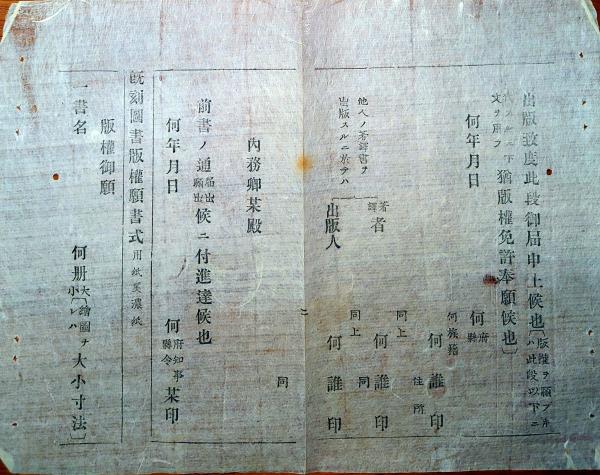 出版致度此段御屆申上候也
版權ヲ願フ者
ハ此段以下ニ
文ヲ用フ
猶版權免許奉願候也
何年月日
何府縣
何族籍
何誰印
住所
著譯者
同上
何誰印
同
他人ノ著譯書ヲ
出版スルニ於テハ
出版人
同上
何誰印
內務卿某殿
同
前書ノ通屆出願出候ニ付進達候也
何年月日
何府知事縣令某印
既刻圖書版權願書式
用紙美濃紙
版權御願
一書名
何册
大小
繪圖ナレハ
大小寸法